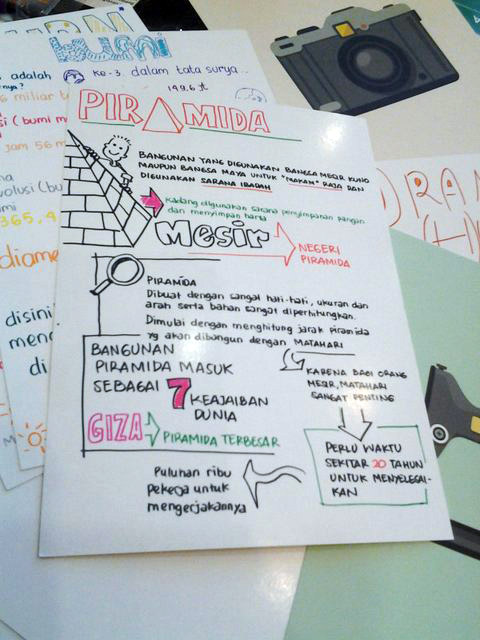 Bumi
adalah
ke-3. dalam tata surya...
149,6 jt
6 miliar t
si (bumi m
jam 56 m
volusi (bu
mi
365,4
diame
disini
menc
di
PIRAMIDA
BANGUNAN YANG DIGUNAKAN BANGSA MESIR KUNO
MAUPUN BANGSA MAYA UNTUK "MAKAM" RAJA DAN
DIGUNAKAN SARANA IBADAH
Kadang digunakan sarana penyimpanan pangan
dan menyimpan harta
Mesir
NEGERI
PIRAMIDA
PIRAMIDA
Dibuat dengan sangat hati-hati, ukuran dan
arah serta bahan sangat diperhitungkan.
Dimulai dengan menghitung jarak Piramida
yg akan dibangun dengan MATAHARI
KARENA BAGI ORANG
MESIR, MATAHARI
SANGAT PENTING
BANGUNAN
PIRAMIDA MASUK
SEBAGAI 7 KEAJAIBAN
DUNIA
GIZA PIRAMIDA TERBESAR
PERLU WAKTU
SEKITAR 20 TAHUN
UNTUK MENYELESAI-
KAN
Puluhan ribu
Pekerja untuk
mengerjakannya
DRAM
(H)